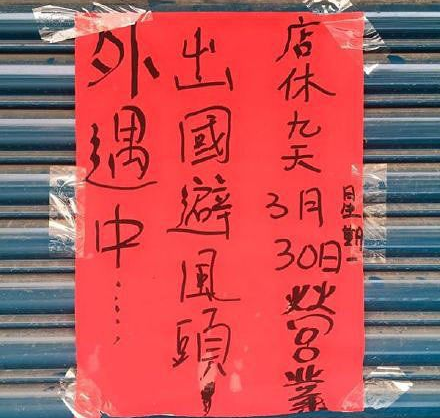 店休九天
3月30日營業
星期一
出國避風頭
外遇中......